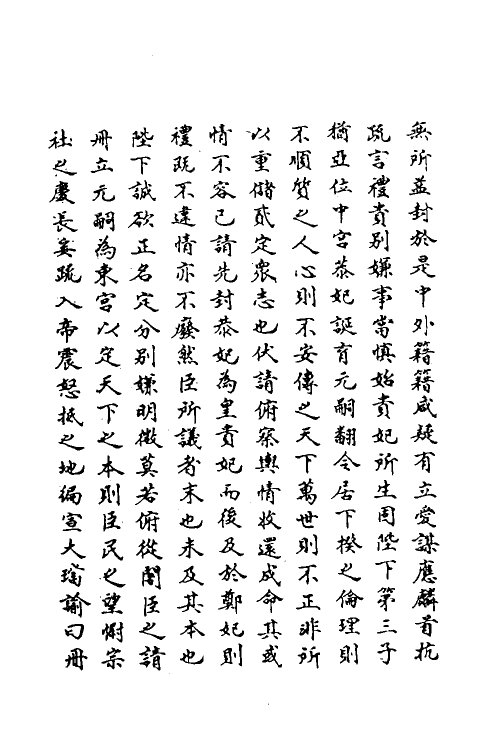 無所並封於是中外籍籍咸疑有立愛謀應麟首抗
疏言禮貴别嫌事當慎始貴妃所生固陛下第三子
猶亞位中宮恭妃誕育元嗣翻令居下揆之倫理則
不順質之人心則不安傳之天下萬世則不正非所
以重儲貳定衆志也伏請俯察輿情收還成命其或
情不容已請先封恭妃為皇貴妃而後及於鄭妃則
禮既不違情亦不廢然臣所議者末也未及其本也
陛下誠欲正名定分别嫌明微莫若俯從閣臣之請
冊立元嗣為東宮以定天下之本則臣民之望慰宗
社之慶長矣疏入帝震怒抵之地徧宣大璫諭曰冊